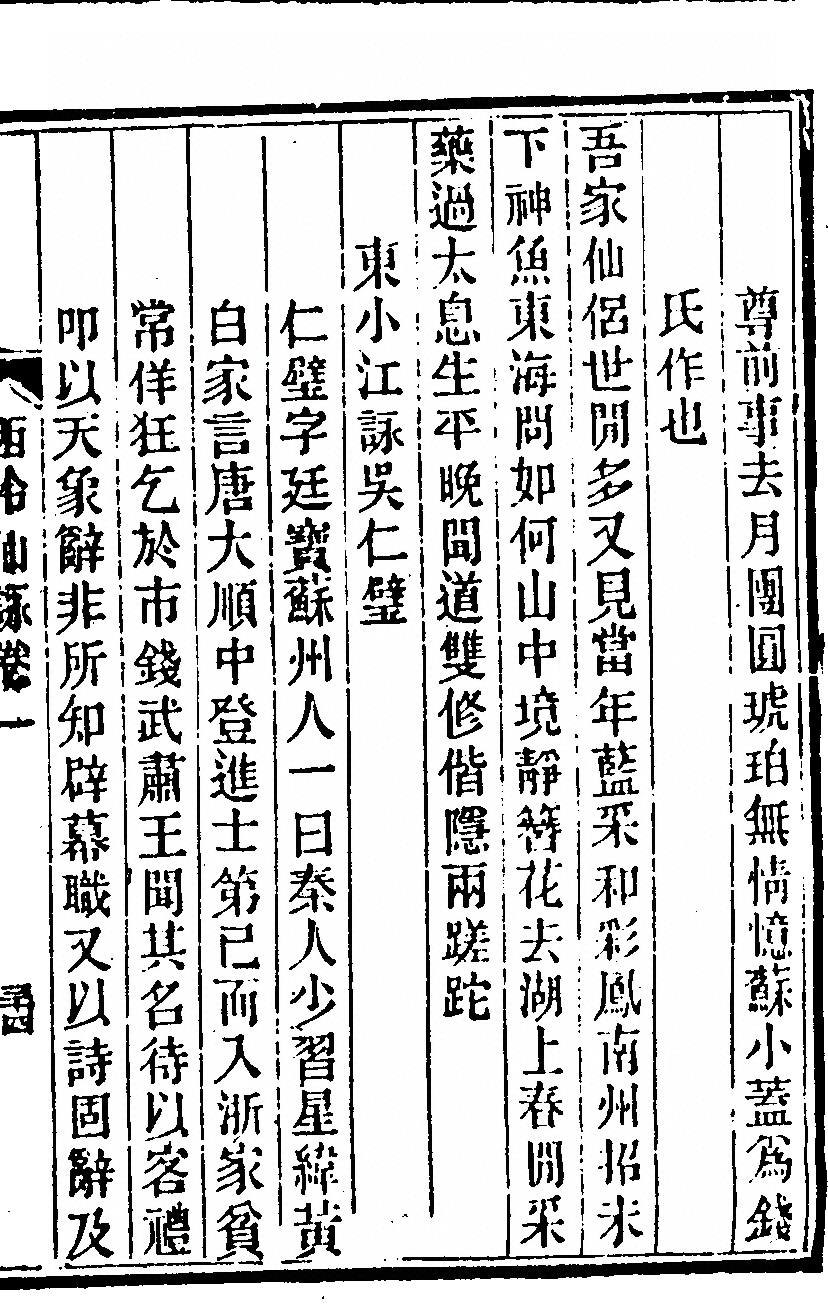 尊前事去月團圓琥珀無情憶蘇小蓋爲錢
氏作也
吾家仙侶世閒多又見當年藍采和彩鳳南州招未
下神魚東海問如何山中境靜簪花去湖上春閒采
藥過太息生平晚聞道雙修偕隱兩蹉跎
東小江詠吳仁璧
仁璧字廷寶蘇州人一曰秦人少習星緯黃
白家言唐大順中登進士第已而入浙家貧
常佯狂乞於市錢武肅王聞其名待以客禮
叩以天象辭非所知辟幕職又以詩固辭及
西泠仙詠卷一